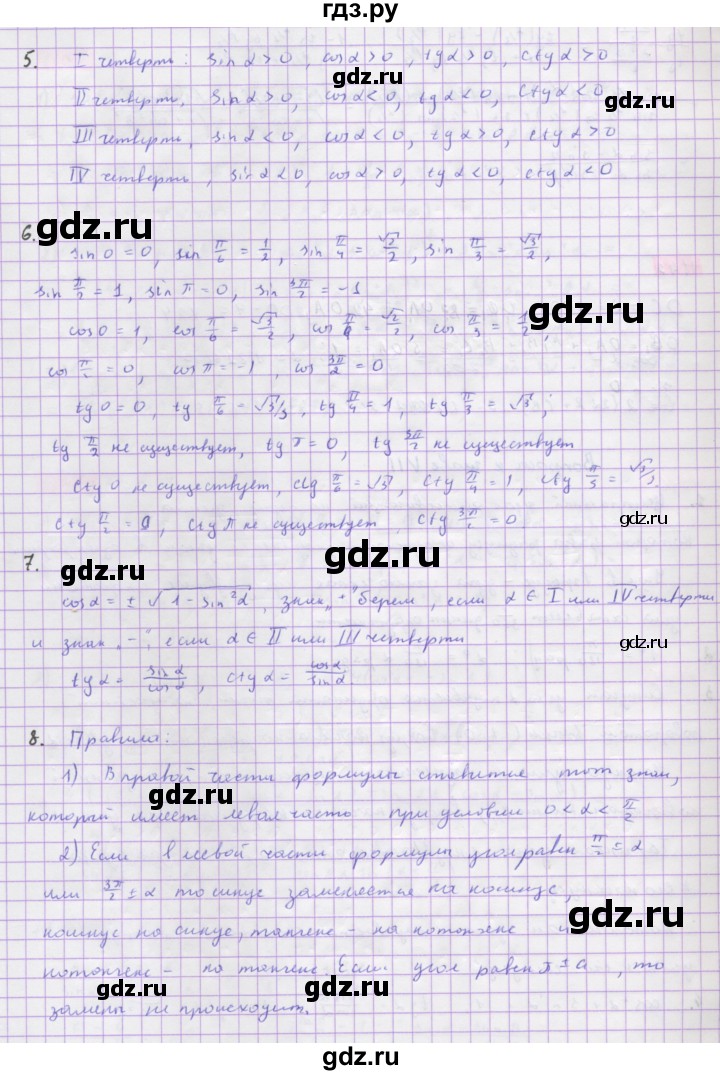 гдз.ру
5. I четверть: sin α > 0, cos α > 0, tg α > 0, ctg α > 0
II четверть, sin α > 0, cos α < 0, tg α < 0, ctg α < 0
gdz.ru
III четверть, sin α < 0, cos α < 0, tg α > 0, ctg α > 0
IV четверть, sin α < 0, cos α > 0, tg α < 0, ctg α < 0
gdz.ru gdz.ru
6. sin 0 = 0, sin π/6 = 1/2, sin π/4 = √2/2, sin π/3 = √3/2,
sin π/2 = 1, sin π = 0, sin 3π/2 = -1
gdz.ru
cos 0 = 1, cos π/6 = √3/2, cos π/4 = √2/2, cos π/3 = 1/2,
cos π/2 = 0, cos π = -1, cos 3π/2 = 0
gdz.ru
tg 0 = 0, tg π/6 = √3/3, tg π/4 = 1, tg π/3 = √3,
tg π/2 не существует, tg π = 0, tg 3π/2 не существует
ctg 0 не существует, ctg π/6 = √3, ctg π/4 = 1, ctg π/3 = √3/3
gdz.ru
ctg π/2 = 0, ctg π не существует, ctg 3π/2 = 0
gdz.ru
7.
cos α = ± √1 - sin²α, знак „+" берем, если α ∈ I или IV четверти
gdz.ru
и знак „-", если α ∈ II или III четверти
tg α = sin α/cos α, ctg α = cos α/sin α
gdz.ru
8. Правила:
gdz.ru
1) В правой части формулы ставится тот знак,
который имеет левая часть при условии 0 < α < π/2
gdz.ru
2) Если в левой части формулы угол равен π/2 ± α
или 3π/2 ± α то синус заменяется на косинус,
gdz.ru
косинус на синус, тангенс - на котангенс и
котангенс - на тангенс. Если угол равен π ± α, то
gdz.ru
замены не происходит.
gdz.ru